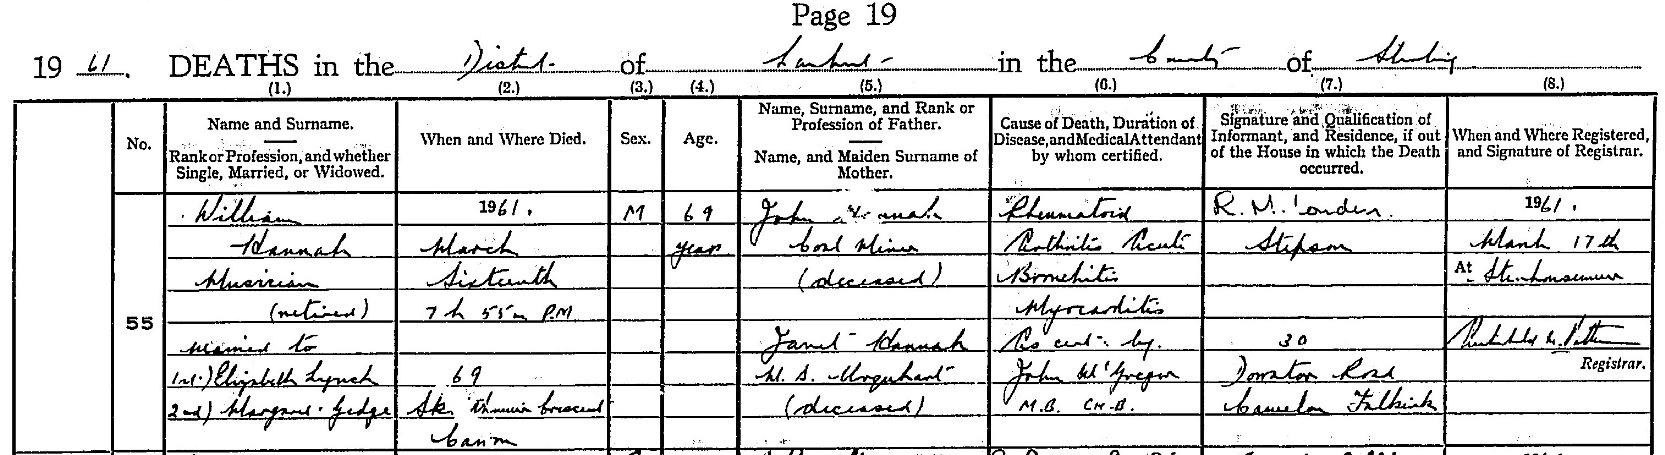 Page 19
19 61. DEATHS in the District of Larbert in the County of Stirling
(1.) (2.) (3.) (4.) (5.) (6.) (7.) (8.)
No.
Name and Surname.
Rank or Profession, and whether
Single, Married, or Widowed.
When and Where Died.
Sex.
Age.
Name, Surname, and Rank or
Profession of Father.
Name, and Maiden Surname of
Mother.
Cause of Death, Duration of
Disease, and Medical Attendant
by whom certified.
Signature and Qualification of
Informant, and Residence, if out
of the House in which the Death
occurred.
When and Where Registered,
and Signature of Registrar.
55
William
Hannah
Musician
(retired)
married to
1st) Elizabeth Lynch
2nd) Margaret Gedge
1961.
March
Sixteenth
7 h 55 m P.M
69
Crescent
Carron
M
69
years
John Hannah
Coal Miner
(deceased)
Janet Hannah
M. S. Urquhart
(deceased)
Rheumatoid
Arthritis Acute
Bronchitis
Myocarditis
As cert. by
John McGregor
M.B. CH.B.
R. M. Louden
Stepson
30
Road
Camelon Falkirk
1961.
March 17th
At Stenhousemuir
Registrar.